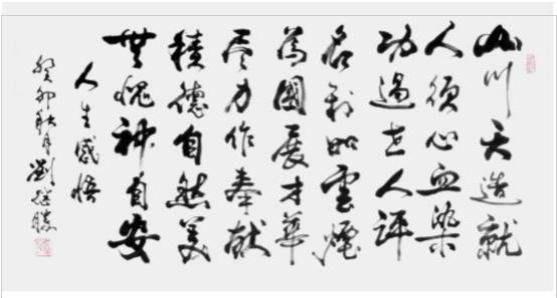 山川天造就
人须心血染
功過世人評
名利如雲煙
為國展才華
尽力作奉献
積德自然美
無愧神自安
人生感悟
癸卯秋月劉